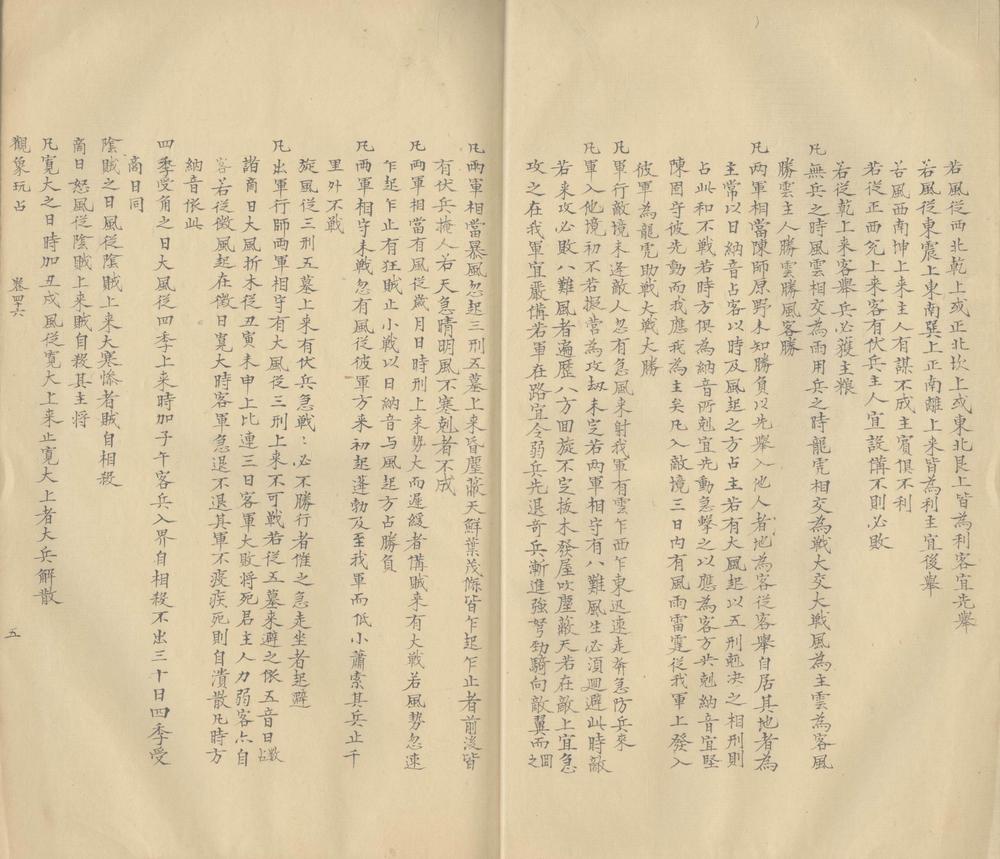 若風從西北乾上或正北坎上或東北艮上皆為利客宜先舉
若風從東震上東南巽上正南離上來皆為利主宜後舉
若風西南坤上來主人有謀不成主賓俱不利
若從正西兌上來客有伏兵主人宜設備不則必敗
若從乾上来客舉兵必獲主粮
凡無兵之時風雲相交為雨用兵之時龍虎相交為戰大交大戰風為主雲為客風
勝雲主人勝雲勝風客勝
凡两軍相當陳師原野未知勝負以先舉入他人者地為客從客舉自居其地者為
主常以日納音占客以時及風起之方占主若有大風起以五刑剋决之相刑則
占此和不戰若時方俱為納音所剋宜先動急擊之以應為客方共剋納音宜堅
陳固守彼先動而我應我為主矣凡入敵境三日内有風雨雷霆從我軍上發入
彼軍為龍虎助戰大戰大勝
凡軍行敵境未逢敵人忽有急風来射我軍有雲乍西乍東迅速走奔急防兵來
凡軍入他境初不若擬營為攻刼未定若两軍相守有八難風生必須廻避此時敵
若来攻必敗八難風者遍歷八方回旋不定拔木發屋吹塵蔽天若在敵上宜急
攻之在我軍宜嚴備若軍在路宜令弱兵先退奇兵漸進強弩勁騎向敵翼而固之
凡两軍相當暴風忽起三刑五墓上来昏塵蔽天鮮葉茂條皆乍起乍止者前後皆
有伏兵掩人若天急晴明風不寒剋者不成
凡两軍相當有風從歲月日時刑上来勢大而遲緩者備賊来有大戰若風勢忽速
乍起乍止有狂賊止小戰以日納音与風起方占勝負
凡两軍相守未戰忽有風從彼軍方来初起蓬勃及至我軍而低小蕭索其兵止千
里外不戰
旋風從三刑五墓上来有伏兵急戰：必不勝行者催之急走坐者起避
凡出軍行師两軍相守有大風從三刑上来不可戰若從五墓来避之依五音日占
諸商日大風折木從丑寅未申上比連三日客軍大敗将死君主人力弱客亦自
客若從徵風起在徵日寬大時客軍急退不退其軍不疫疾死則自潰散凡時方
納音依此
四季受角之日大風從四季上来時加子午客兵入界自相殺不出三十日四季受
商日同
陰賊之日風從陰賊上来大寒慘者賊自相殺
商日怒風從陰賊上来賊自殺其主将
凡寬大之日時加丑戌風從寬大上来止寬大上者大兵解散
觀象玩占
卷四十六
五